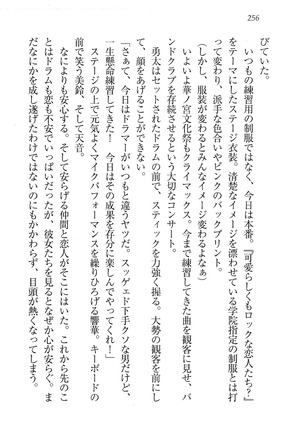 256
びていた。
　いつもの練習用の制服ではなく、今日は本番。『可愛らしくもロックな恋人たち？』
をテーマにしたステージ衣装。清楚なイメージを漂わせている学院指定の制服とは打
って変わり、派手な色合いやピンクのバックプリント。
（しかし、服装が変わるとみんなイメージ変わるよなぁ）
　いよいよ華ノ宮文化祭もクライマックス。今まで練習してきた曲を観客に見せ、バ
ンドクラブを存続させるという大切なコンサート。
　勇太はセットされたドラムの前で、スティックを力強く握る。大勢の観客を前にし
て、顔をあげることができない。
「さぁて、今日はドラマーがいつもと違うヤツだ。スッゲェド下手クソな男だけど、
一生懸命練習してきた！　今日はその成果を存分に楽しんでやってくれ！」
　ステージの上で元気よくマイクパフォーマンスを繰りひろげる響華。キーボードの
前で笑う美鈴、そして天音。
　なによりも安心する。そして安らげる仲間と恋人がそこにいた。これから先のこ
とはドラムも恋も不安でいっぱいだったが、彼女たちを見るとなぜか心が安らぐ。
　まだなにかを成し遂げたわけでもないのにもかかわらず、目頭が熱くなってしまう。